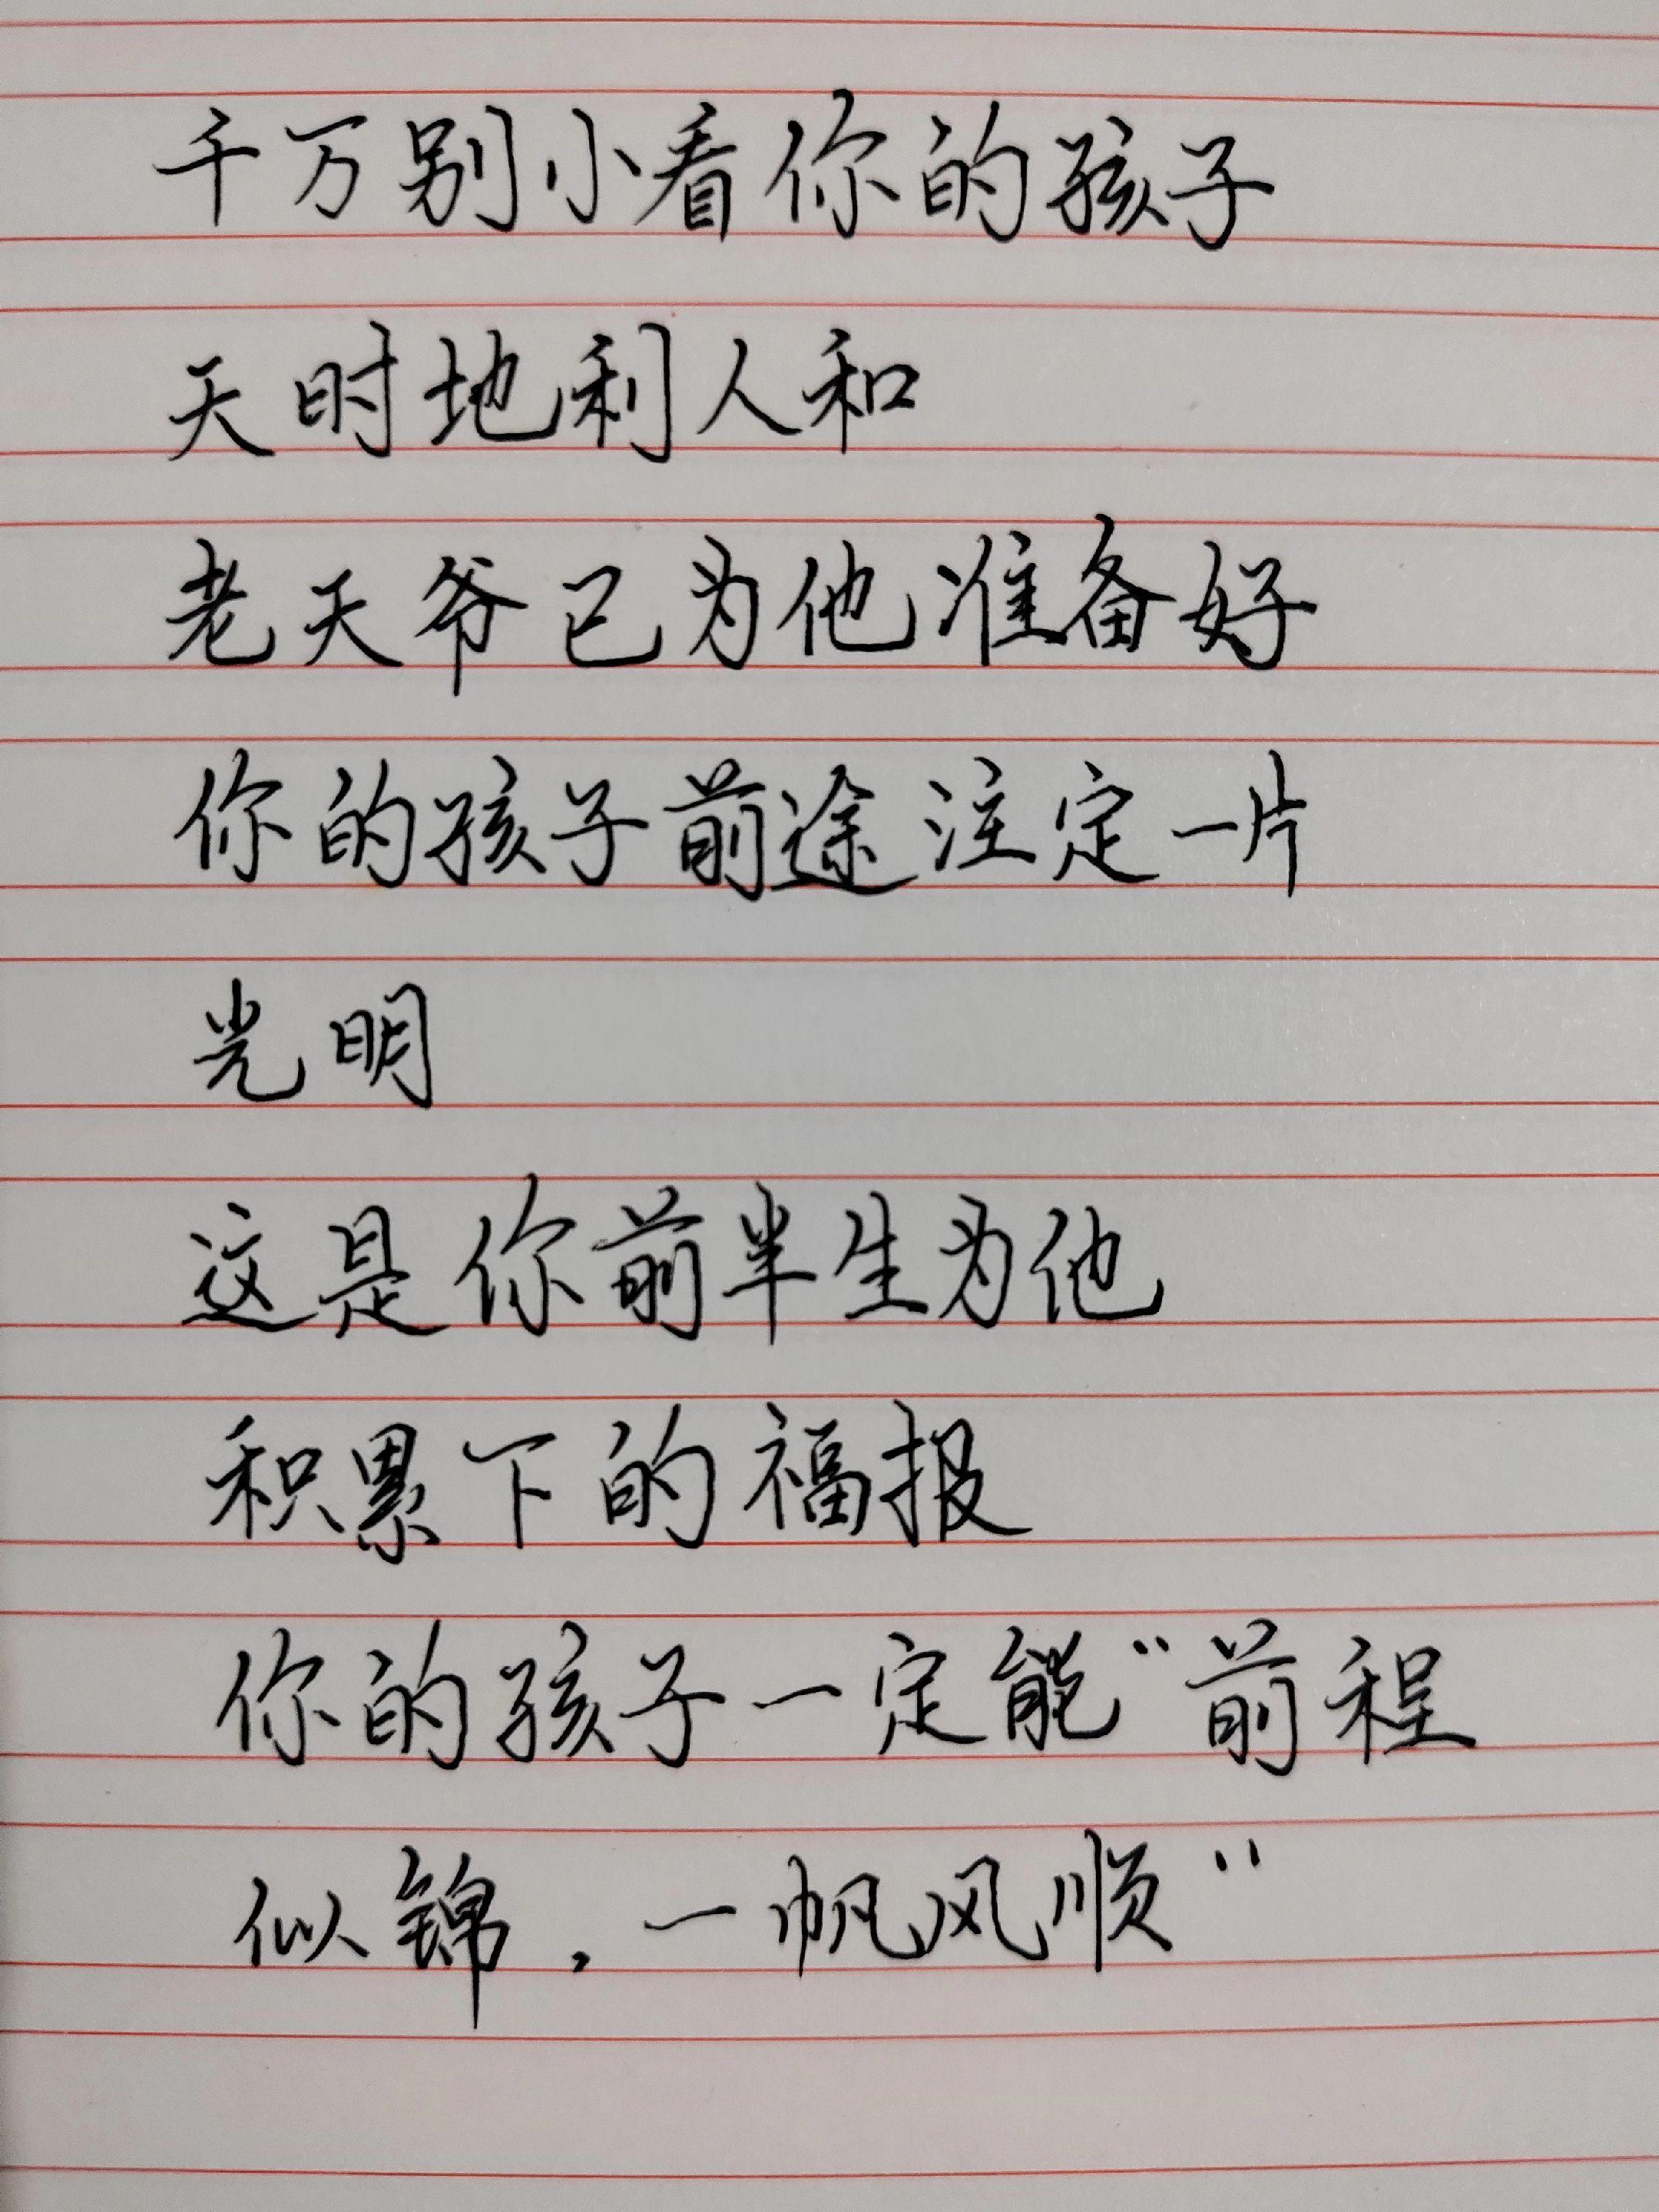 千万别小看你的孩子
天时地利人和
老天爷已为他准备好
你的孩子前途注定一片
光明
这是你前半生为他
积累下的福报
你的孩子一定能“前程
似锦，一帆风顺”